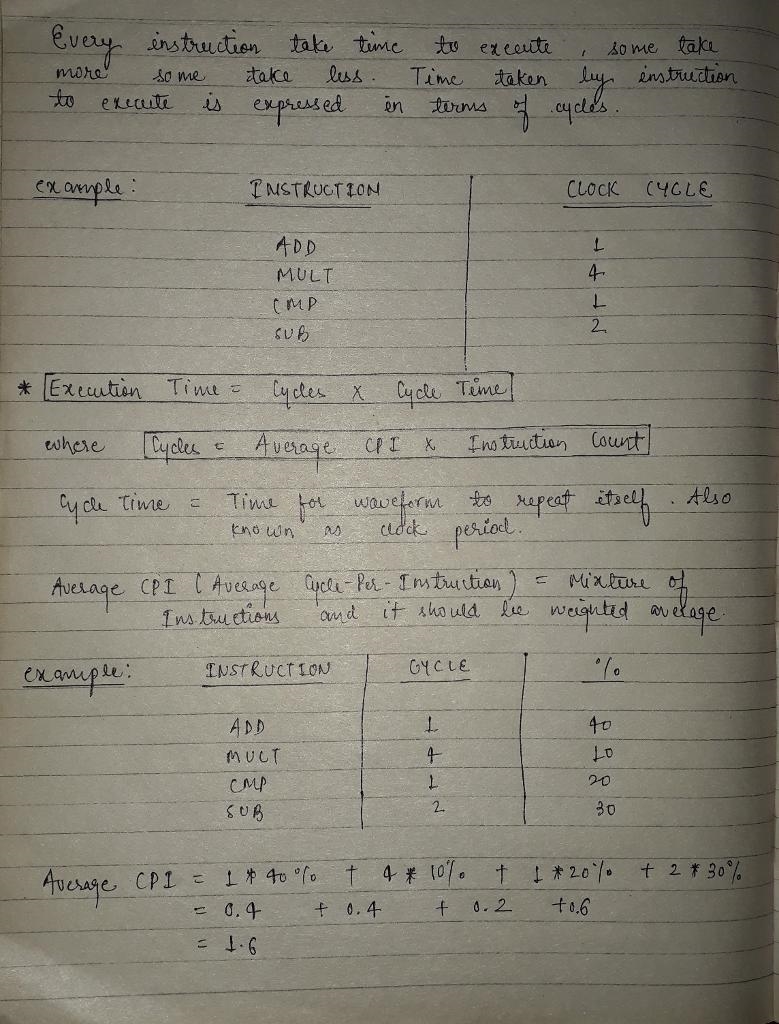 Every instruction take time to execute , some take
more some take less. Time taken by instruction
to execute is expressed in terms of cycles.
example: INSTRUCTION CLOCK CYCLE
ADD 1
MULT 4
CMP 1
SUB 2
* Execution Time = Cycles x Cycle Time
where Cycles = Average CPI x Instruction Count
Cycle Time = Time for waveform to repeat itself. Also
known as clock period.
Average CPI ( Average Cycle-Per-Instruction) = Mixture of
Instructions and it should be weighted average.
example: INSTRUCTION CYCLE %
ADD 1 40
MULT 4 10
CMP 1 20
SUB 2 30
Average CPI = 1 * 40% + 4 * 10% + 1 * 20% + 2 * 30%
= 0.4 + 0.4 + 0.2 + 0.6
= 1.6